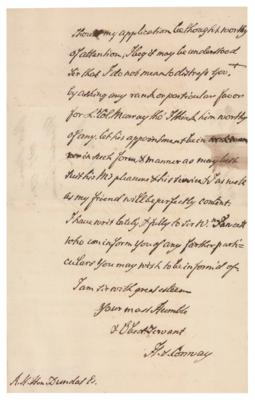 Should my application be thought worthy
of attention, I beg it may be understood
Sir that I do not mean to distress You,
by asking any rank or particular favor
for Lt. Col. Murray tho' I think him worthy
of any. let his appointment be in
in such form & manner as may best
suit his M's pleasure & his service & as well
as my friend will be perfectly content.
I have writ lately & fully to Sir W. Fawcett
who can inform You of any farther parti-
culars You may wish to be inform'd of.
I am Sir with great esteem
Your most Humble
& Obed Servant
H. S. Conway
Rt. Hon. Dundas